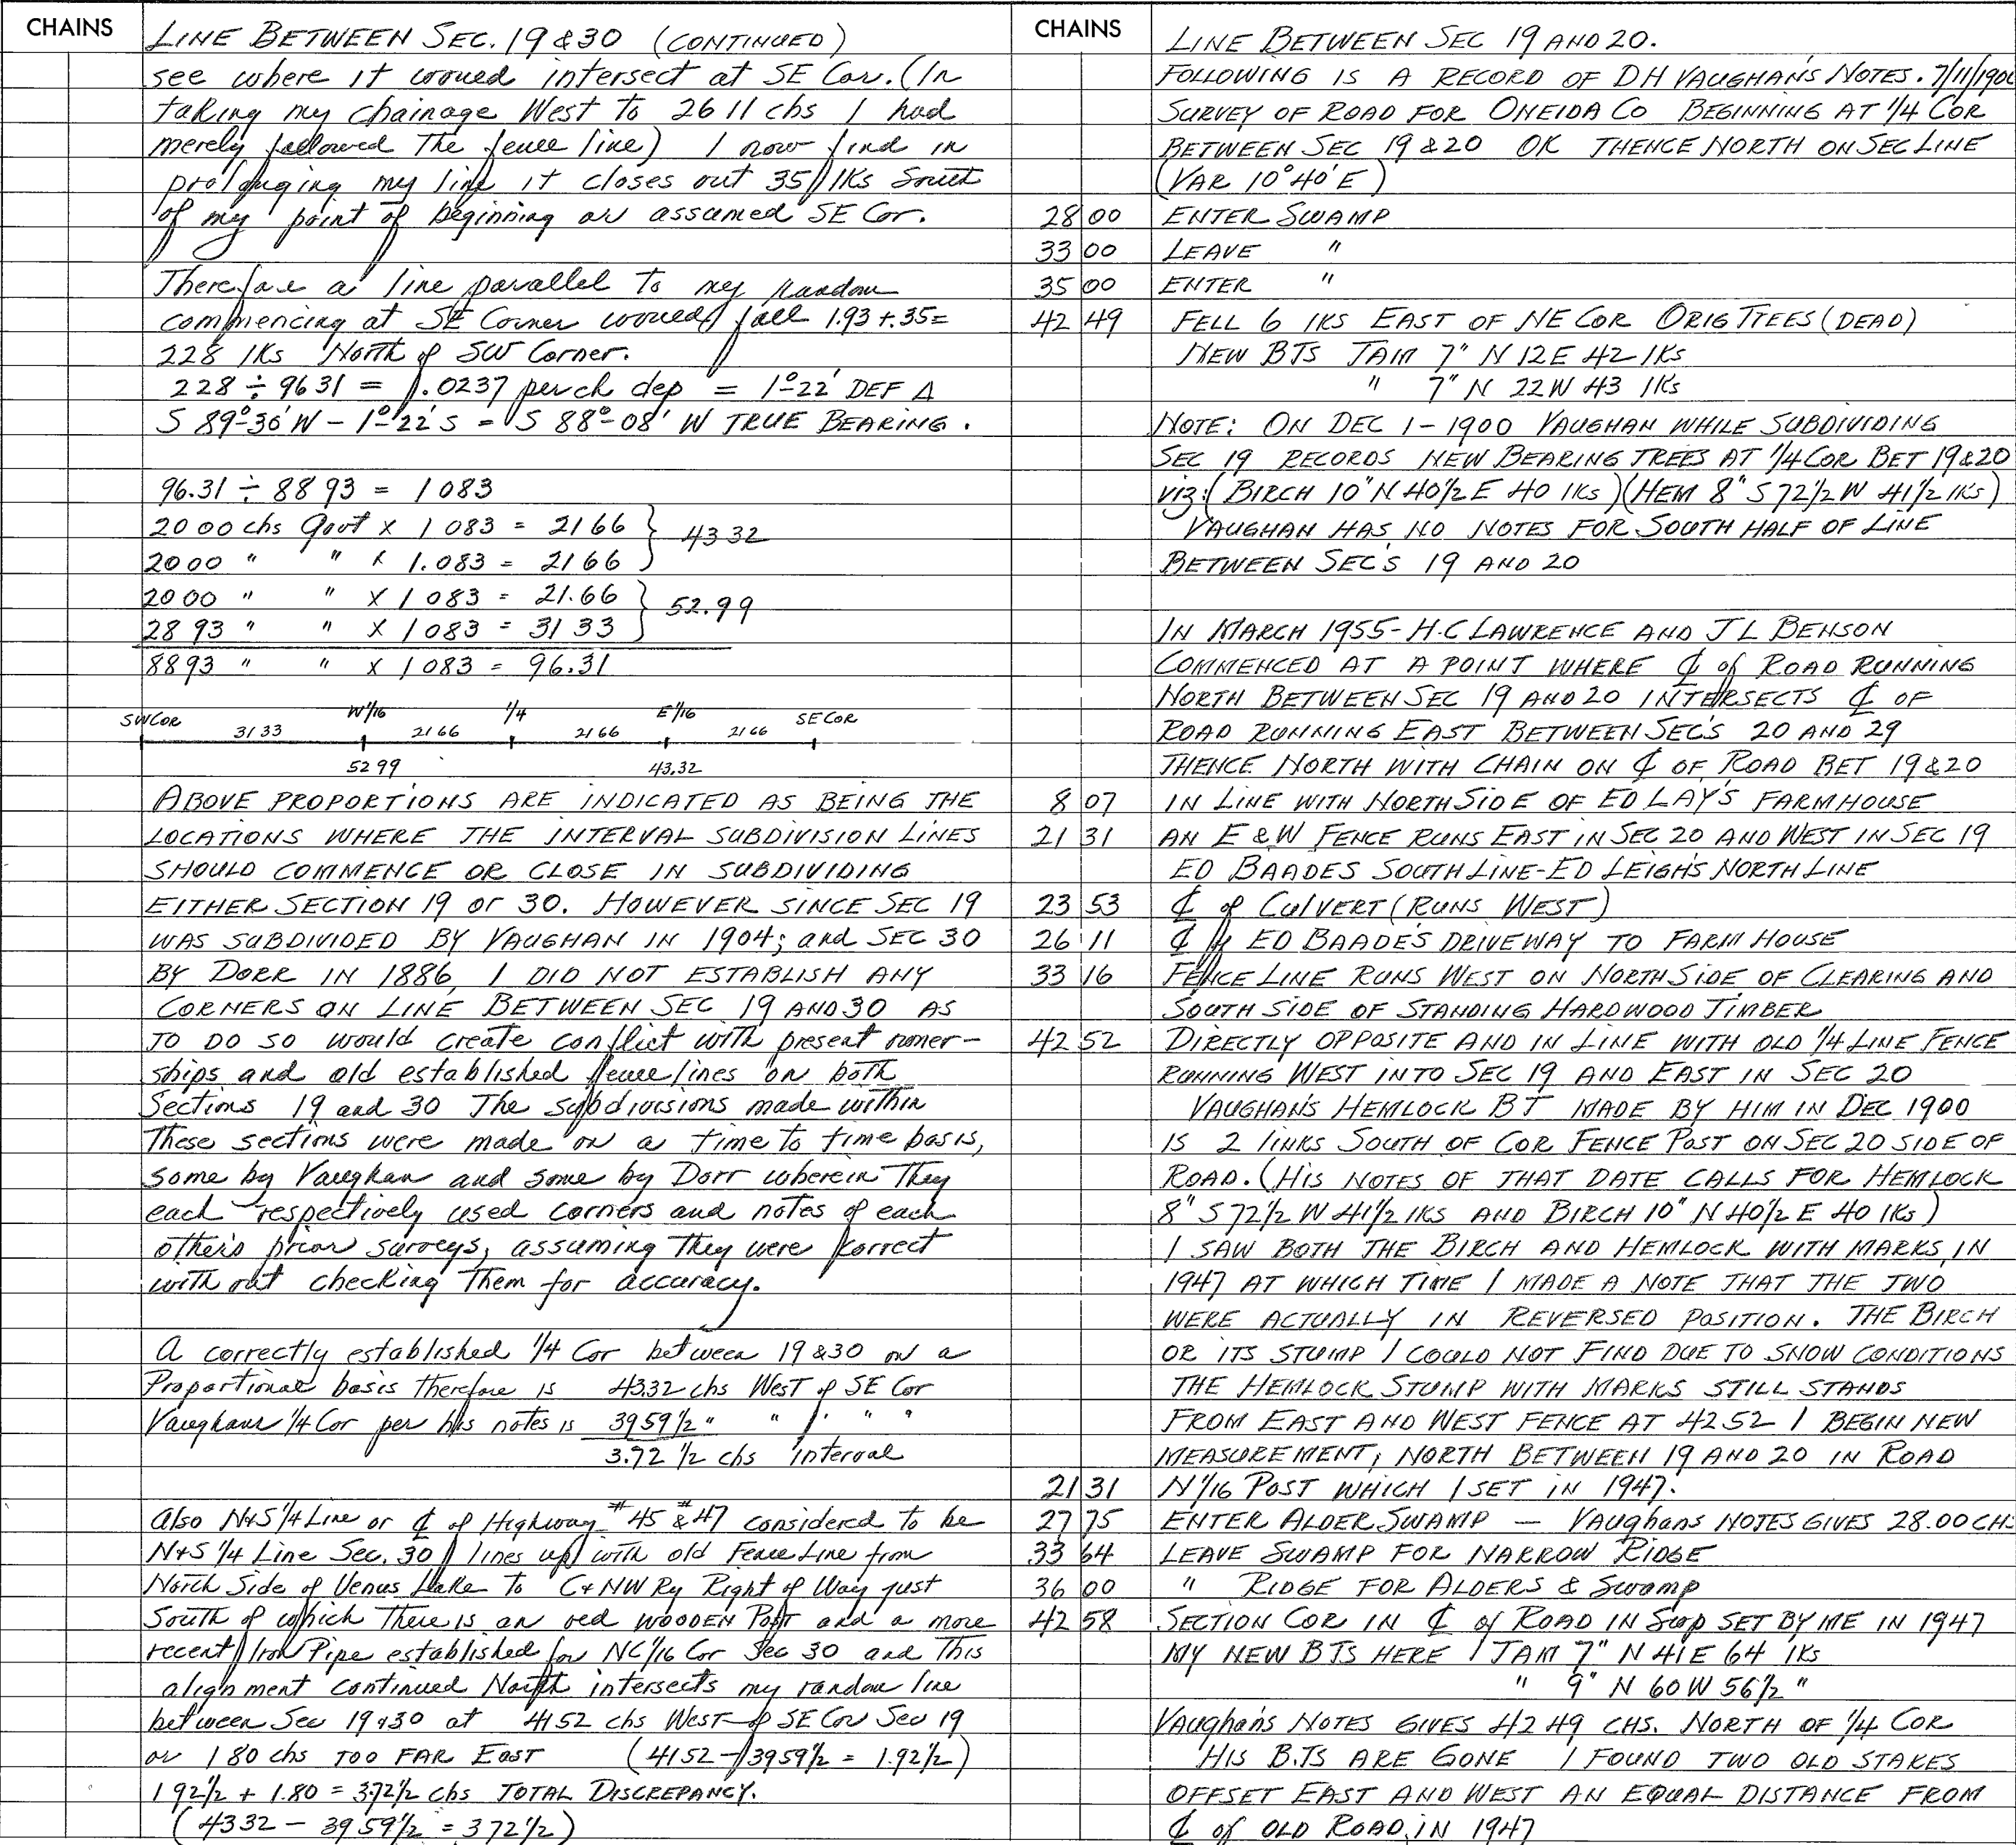 CHAINS
LINE BETWEEN SEC. 19 & 30 (CONTINUED)
see where it woued intersect at SE Cor. (In
taking my chainage West to 26 11 chs I had
merely followed The fence line) I now find in
prolonging my line it closes out 35 lKs South
of my point of beginning or assumed SE Cor.
Therefore a line parallel to my random
commencing at SE Corner woued fall 1.93 + .35 =
228 lKs North of SW Corner.
228 ÷ 96 31 = 1.0237 per ch dep = 1°-22' DEF Δ
S 89°-30' W - 1°-22' S = S 88°-08' W TRUE BEARING.
96.31 ÷ 88 93 = 1 083
20 00 chs Govt x 1 083 = 21 66
20 00 " " x 1.083 = 21 66
43 32
20 00 " " x 1 083 = 21.66
28 93 " " x 1 083 = 31 33
52.99
88 93 " " x 1 083 = 96.31
SW COR W 1/16 1/4 E 1/16 SE COR
31 33 21 66 21 66 21 66
52 99 43.32
ABOVE PROPORTIONS ARE INDICATED AS BEING THE
LOCATIONS WHERE THE INTERVAL SUBDIVISION LINES
SHOULD COMMENCE OR CLOSE IN SUBDIVIDING
EITHER SECTION 19 OR 30. HOWEVER SINCE SEC 19
WAS SUBDIVIDED BY VAUGHAN IN 1904; and SEC 30
BY DORR IN 1886, I DID NOT ESTABLISH ANY
CORNERS ON LINE BETWEEN SEC 19 AND 30 AS
TO DO SO would create conflict with present owner-
ships and old established fence lines on both
Sections 19 and 30 The subdivisions made within
These sections were made on a time to time basis,
some by Vaughan and some by Dorr wherein They
each respectively used corners and notes of each
other's prior surveys, assuming They were correct
with out checking Them for accuracy.
A correctly established 1/4 Cor between 19 & 30 on a
Proportional basis therefore is 43.32 chs West of SE Cor
Vaughans 1/4 Cor per his notes is 39 59 1/2 " " " " "
3.72 1/2 chs interval
Also N+S 1/4 Line or ℄ of Highway #45 & #47 considered to be
N+S 1/4 Line Sec. 30 lines up with old Fence Line from
North Side of Venus Lake To C+NW Ry Right of Way just
South of which There is an oed WOODEN Post and a more
recent Iron Pipe established for NC 1/16 Cor Sec 30 and This
alignment continued North intersects my random line
between Sec 19 & 30 at 41 52 chs West of SE Cor Sec 19
or 1 80 chs TOO FAR EAST (41 52 - 39 59 1/2 = 1.92 1/2)
1 92 1/2 + 1.80 = 3.72 1/2 chs TOTAL DISCREPANCY.
(43 32 - 39 59 1/2 = 3 72 1/2)
CHAINS
LINE BETWEEN SEC 19 AND 20.
FOLLOWING IS A RECORD OF DH VAUGHAN'S NOTES. 7/11/190
SURVEY OF ROAD FOR ONEIDA CO BEGINNING AT 1/4 COR
BETWEEN SEC 19 & 20 OK THENCE NORTH ON SEC LINE
(VAR 10° 40' E)
28 00 ENTER SWAMP
33 00 LEAVE "
35 00 ENTER "
42 49 FELL 6 lKS EAST OF NE COR ORIG TREES (DEAD)
NEW BTS TAM 7" N 12 E 42 lKs
" 7" N 22 W 43 lKs
NOTE: ON DEC 1-1900 VAUGHAN WHILE SUBDIVIDING
SEC 19 RECORDS NEW BEARING TREES AT 1/4 COR BET 19 & 20
viz: (BIRCH 10" N 40 1/2 E 40 lKs) (HEM 8" S 72 1/2 W 41 1/2 lKs)
VAUGHAN HAS NO NOTES FOR SOUTH HALF OF LINE
BETWEEN SEC'S 19 AND 20
IN MARCH 1955 - H.C LAWRENCE AND J L BENSON
COMMENCED AT A POINT WHERE ℄ of ROAD RUNNING
NORTH BETWEEN SEC 19 AND 20 INTERSECTS ℄ OF
ROAD RUNNING EAST BETWEEN SEC'S 20 AND 29
THENCE NORTH WITH CHAIN ON ℄ OF ROAD BET 19 & 20
8 07 IN LINE WITH NORTH SIDE OF ED LAY'S FARM HOUSE
21 31 AN E & W FENCE RUNS EAST IN SEC 20 AND WEST IN SEC 19
ED BAADES SOUTH LINE - ED LEIGHS NORTH LINE
23 53 ℄ of CULVERT (RUNS WEST)
26 11 ℄ of ED BAADE'S DRIVEWAY TO FARM HOUSE
33 16 FENCE LINE RUNS WEST ON NORTH SIDE OF CLEARING AND
SOUTH SIDE OF STANDING HARDWOOD TIMBER
42 52 DIRECTLY OPPOSITE AND IN LINE WITH OLD 1/4 LINE FENCE
RUNNING WEST INTO SEC 19 AND EAST IN SEC 20
VAUGHAN'S HEMLOCK BT MADE BY HIM IN DEC 1900
IS 2 LINKS SOUTH OF COR FENCE POST ON SEC 20 SIDE OF
ROAD. (HIS NOTES OF THAT DATE CALLS FOR HEMLOCK
8" S 72 1/2 W 41 1/2 lKS AND BIRCH 10" N 40 1/2 E 40 lKs)
I SAW BOTH THE BIRCH AND HEMLOCK WITH MARKS IN
1947 AT WHICH TIME I MADE A NOTE THAT THE TWO
WERE ACTUALLY IN REVERSED POSITION. THE BIRCH
OR ITS STUMP I COULD NOT FIND DUE TO SNOW CONDITIONS
THE HEMLOCK STUMP WITH MARKS STILL STANDS
FROM EAST AND WEST FENCE AT 42 52 I BEGIN NEW
MEASUREMENT, NORTH BETWEEN 19 AND 20 IN ROAD
21 31 N 1/16 POST WHICH I SET IN 1947.
27 75 ENTER ALDER SWAMP — VAUGHANS NOTES GIVES 28.00 CH.
33 64 LEAVE SWAMP FOR NARROW RIDGE
36 00 " RIDGE FOR ALDERS & Swamp
42 58 SECTION COR IN ℄ of ROAD IN Swp SET BY ME IN 1947
MY NEW BTS HERE 1 TAM 7" N 41 E 64 lKs
" 9" N 60 W 56 1/2 "
VAUGHAN'S NOTES GIVES 42 49 CHS. NORTH OF 1/4 COR
HIS B.TS ARE GONE I FOUND TWO OLD STAKES
OFFSET EAST AND WEST AN EQUAL DISTANCE FROM
℄ of OLD ROAD, IN 1947